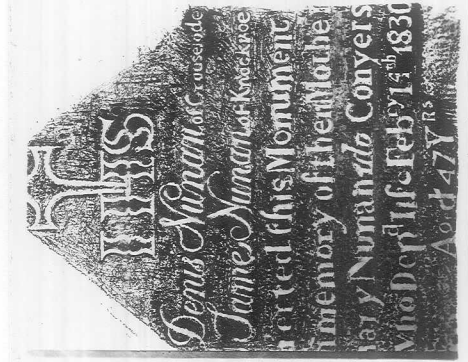 IHS
Denis Nunan of
Jame Nunan of
erected this Monument
memory of then Mothe
Mary Nunan als Conyers
who Depd life Feby 14th 1830
Aged 47 Yrs